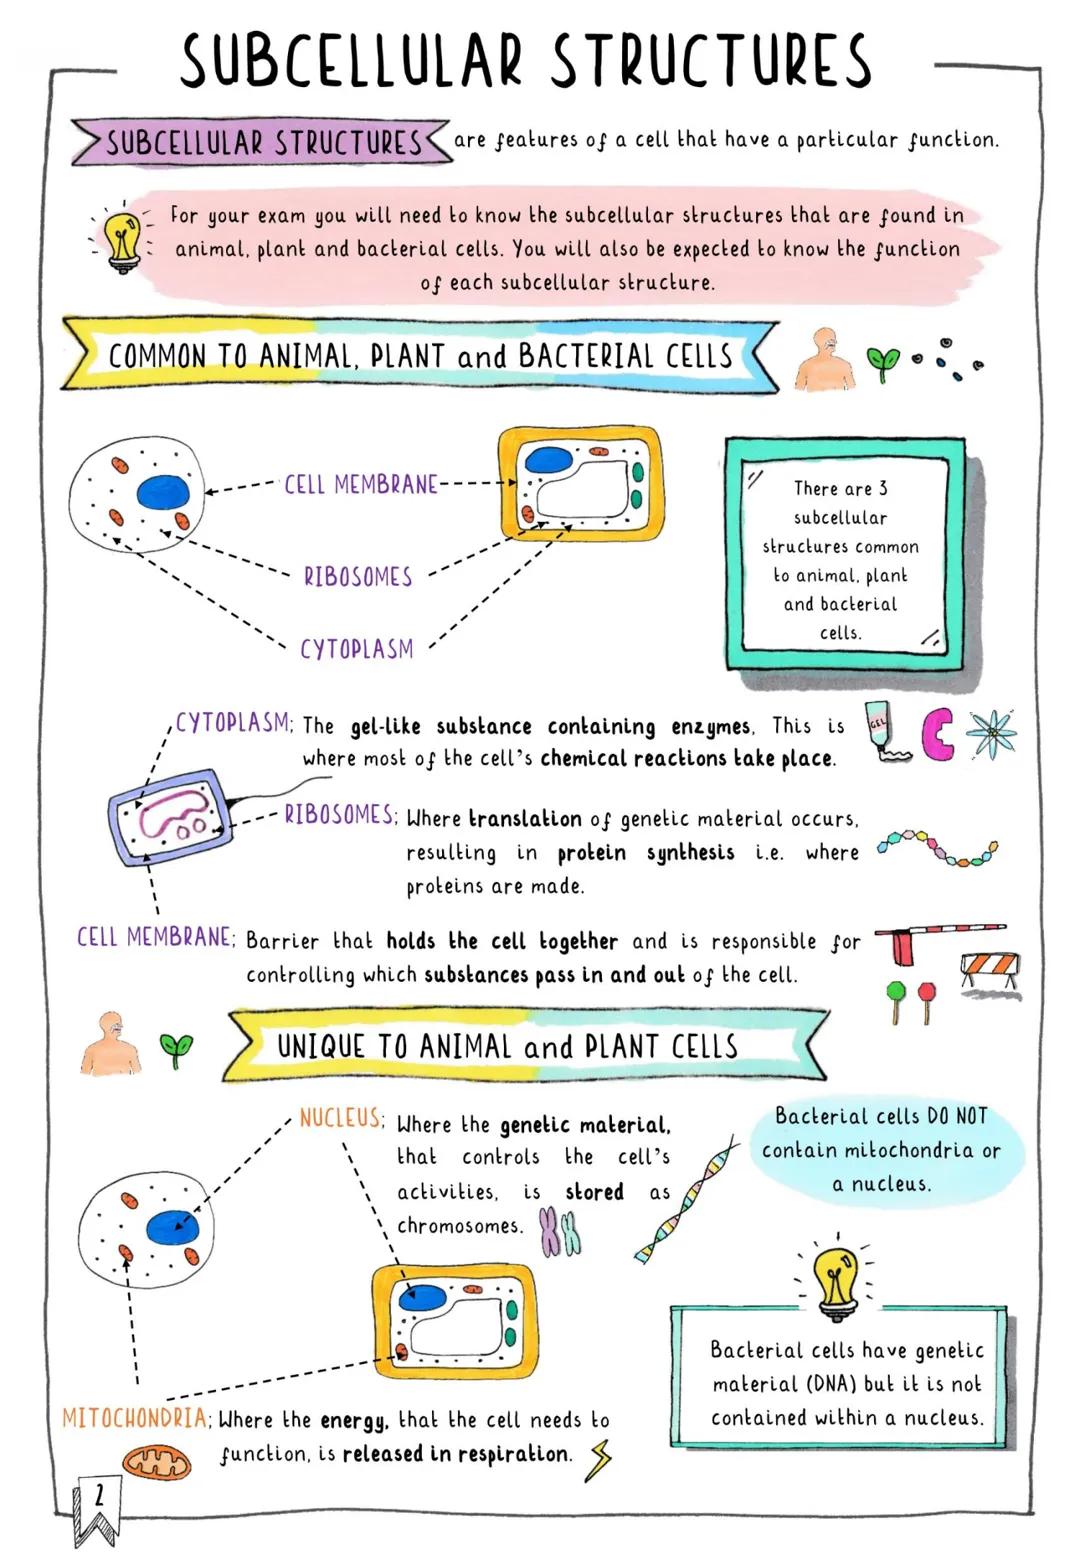 SUBCELLULAR STRUCTURES
SUBCELLULAR STRUCTURES are features of a cell that have a particular function.
For your exam you will need to know the subcellular structures that are found in
animal, plant and bacterial cells. You will also be expected to know the function
of each subcellular structure.
COMMON TO ANIMAL, PLANT and BACTERIAL CELLS
CELL MEMBRANE
RIBOSOMES
CYTOPLASM
There are 3
subcellular
structures common
to animal, plant
and bacterial
cells.
CYTOPLASM; The gel-like substance containing enzymes. This is
where most of the cell's chemical reactions take place.
GEL
RIBOSOMES; Where translation of genetic material occurs,
resulting in protein synthesis i.e. where
proteins are made.
CELL MEMBRANE; Barrier that holds the cell together and is responsible for
controlling which substances pass in and out of the cell.
UNIQUE TO ANIMAL and PLANT CELLS
NUCLEUS; Where the genetic material,
that controls the cell's
activities, is stored as
chromosomes.
Bacterial cells DO NOT
contain mitochondria or
a nucleus.
Bacterial cells have genetic
material (DNA) but it is not
contained within a nucleus.
MITOCHONDRIA; Where the energy, that the cell needs to
function, is released in respiration.
2